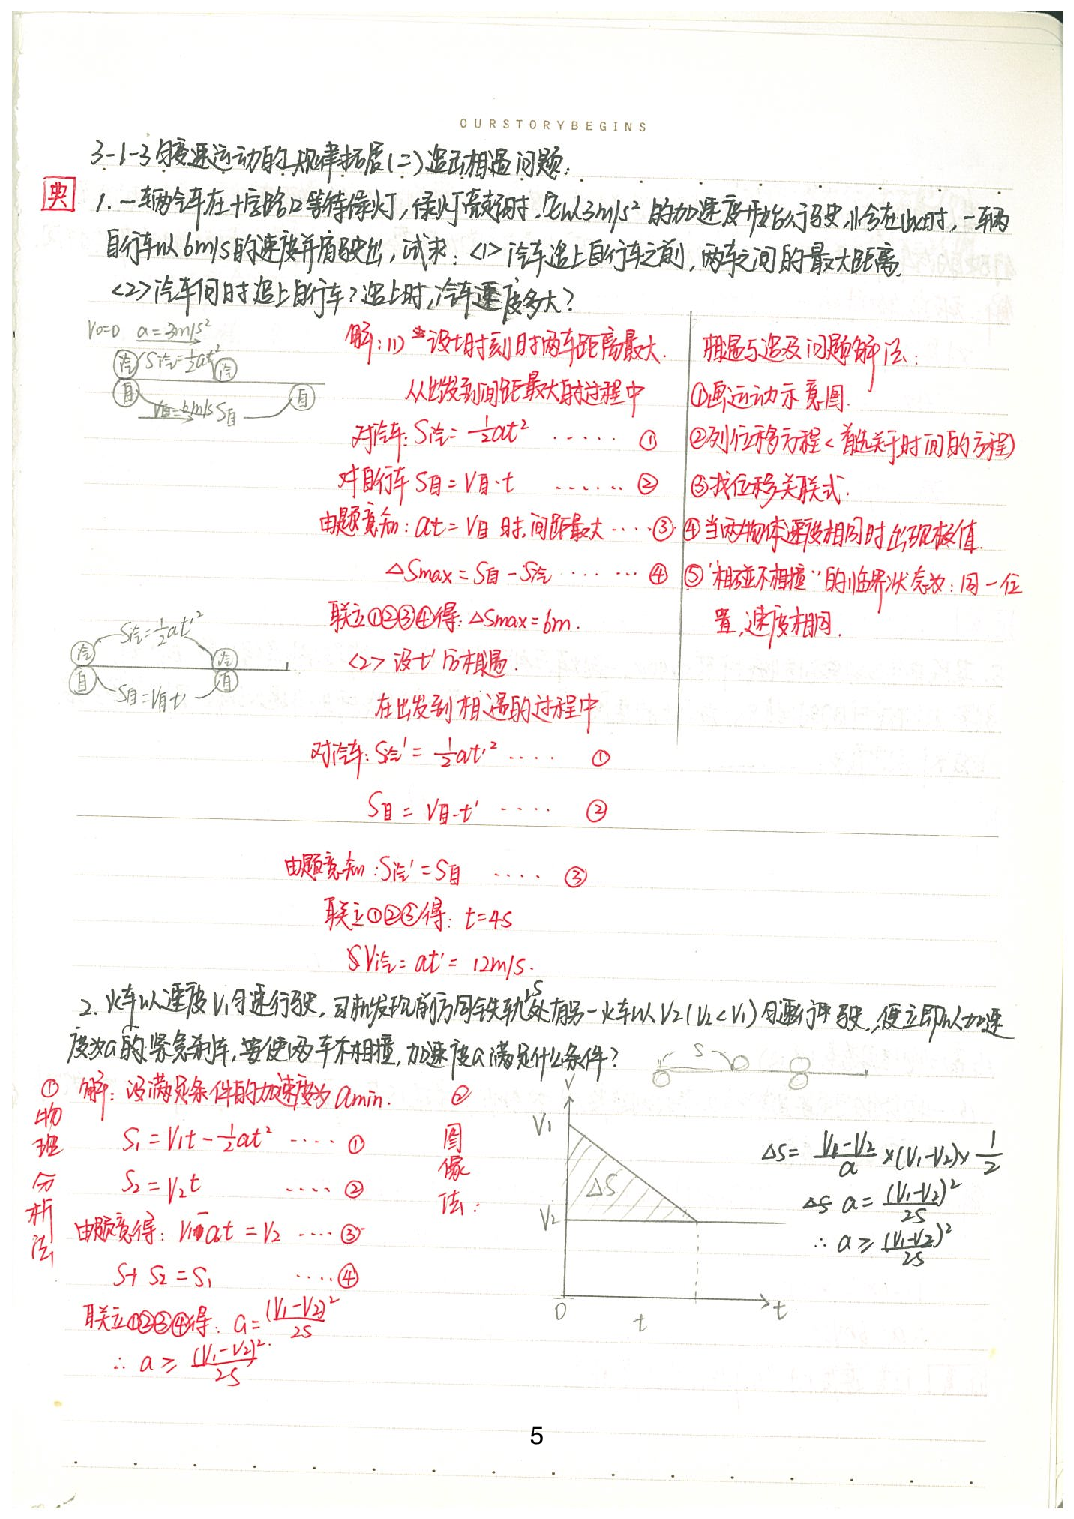 OURSTORYBEGINS
3-1-3匀变速运动的规律拓展(二)追及相遇问题:
典
1. 一辆汽车在十字路口等待绿灯,绿灯亮时,它以3m/s²的加速度开始行驶,恰在此时,一辆
自行车以6m/s的速度并肩驶出,试求:<1>汽车追上自行车之前,两车之间的最大距离.
<2>汽车何时追上自行车?追上时,汽车速度多大?
V0=0 a=3m/s²
汽 S汽=½at² 汽
自 V自=6m/s S自 自
解:(1) 设t时刻时两车距离最大.
从出发到间距最大时过程中
对汽车:S汽=½at² ...... ①
对自行车 S自=V自·t ...... ②
由题意知:at=V自 时,间距最大 .... ③
ΔSmax=S自-S汽 ...... ④
联立①②③④得:ΔSmax=6m.
<2>设t'后相遇.
在出发到相遇的过程中
对汽车:S汽'=½at'² .... ①
S自=V自·t' .... ②
由题意知:S汽'=S自 .... ③
联立①②③得:t=4s
V汽=at'=12m/s.
相遇与追及问题解法:
①画运动示意图.
②列位移方程<首选关于时间的方程)
③找位移关联式.
④当两物体速度相同时出现极值.
⑤"相碰不相撞"的临界状态为:同一位
置,速度相同.
汽 S汽=½at'² 汽
自 S自=V自t' 自
2. 火车以速度V1匀速行驶,司机发现前方同铁轨S处有另一火车以V2(V2<V1)匀速行驶,便立即以加速
度为a的紧急刹车,要使两车不相撞,加速度a满足什么条件?
S
①物理分析法
解:设满足条件的加速度为amin.
S1=V1t-½at² .... ①
S2=V2t .... ②
由题意得:V1-at=V2 .... ③
S+S2=S1 .... ④
联立①②③④得:a=(V1-V2)²/2S
∴a≥(V1-V2)²/2S
②图像法:
V
V1
ΔS
V2
0 t t
ΔS=(V1-V2)/a×(V1-V2)×1/2
a=(V1-V2)²/2S
∴a≥(V1-V2)²/2S
5